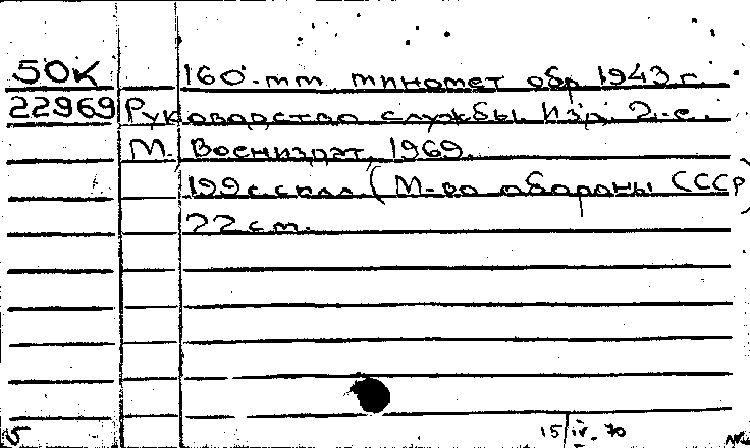 50К 160-мм миномет обр. 1943 г.
22969 Руководство службы. Изд. 2-е.
М. Воениздат, 1969.
199 с. с илл. (М-во обороны СССР)
22 см.
15/IV-70